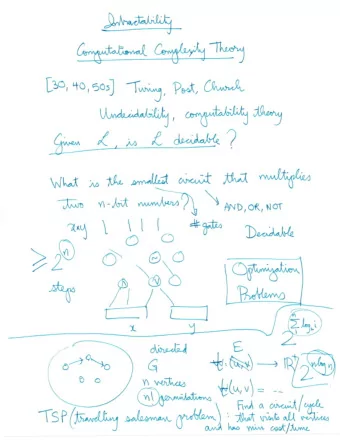 Intractability
Computational Complexity Theory
[30, 40, 50s] Turing, Post, Church
Undecidability, computability theory
Given L, is L decidable?
What is the smallest circuit that multiplies
two n-bit numbers?
AND, OR, NOT
# gates
Decidable
xxy
≥ 2^n
steps
x y
Optimization
Problems
directed
G
n vertices
n! permutations
E
(u, v) = --
Find a circuit/cycle
TSP (travelling salesman problem): that visits all vertices
and has min cost/time